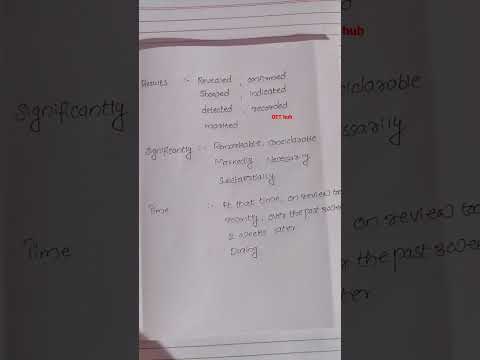 Results :- Revealed, confirmed
Showed, indicated
detected, recorded
marked
OTT hub
Significantly :- Remarkable, considerable
Markedly Necessarily
Substantially
Time :- At that time, on review to
recently, over the past
2 weeks later
During
hub
Significantly
iderable
ssarily
Time
on review to
the past
ater